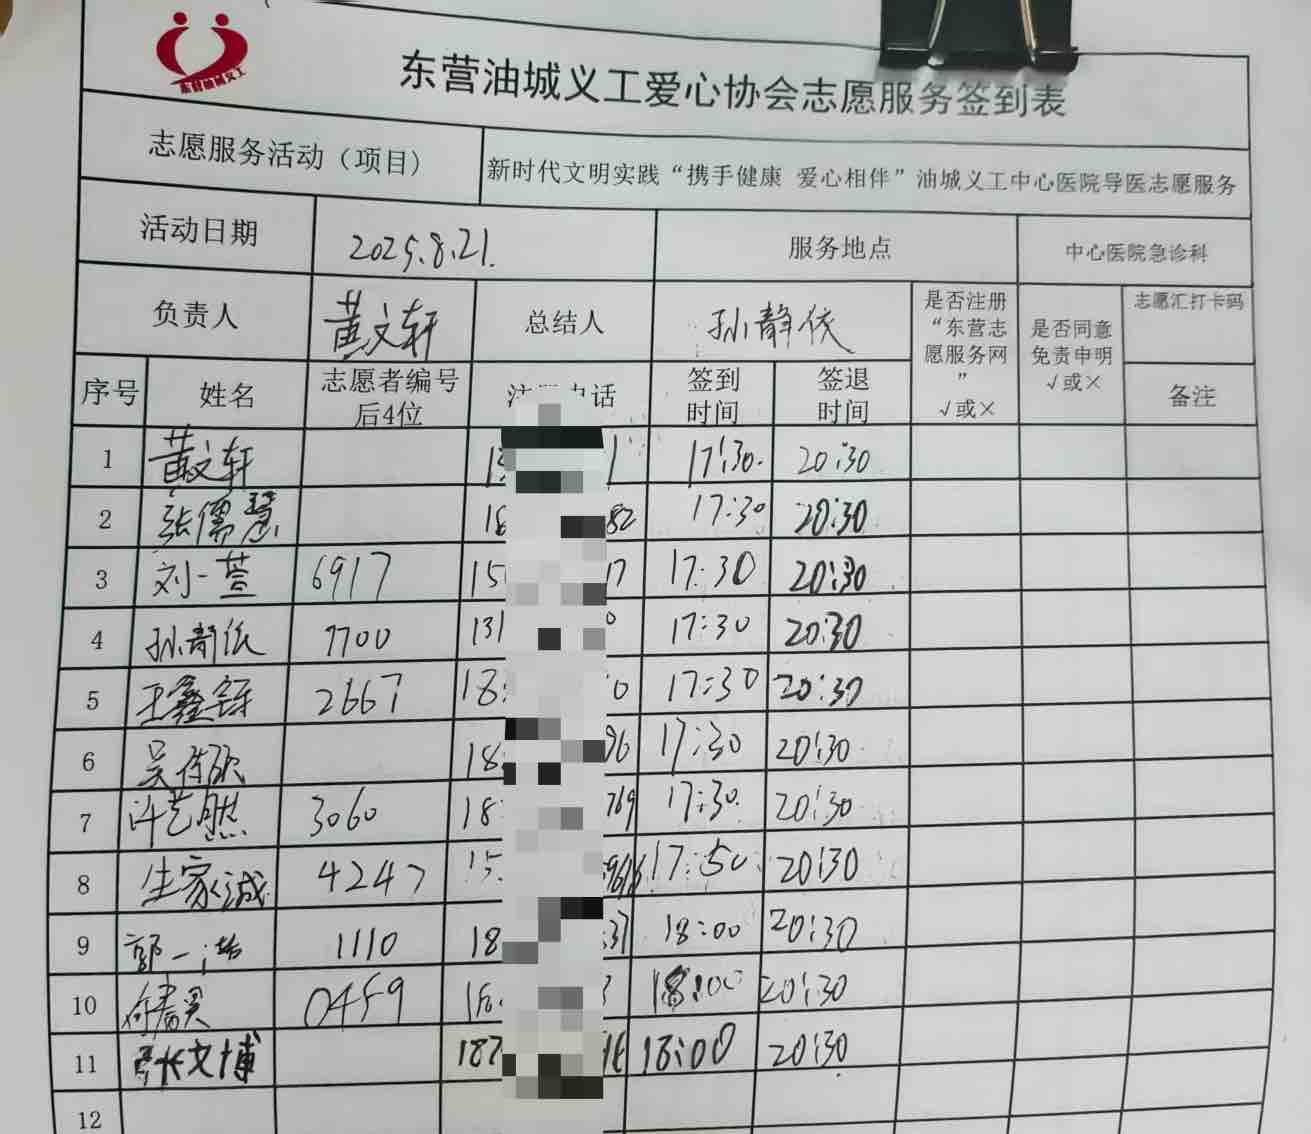 东营油城义工
东营油城义工爱心协会志愿服务签到表
志愿服务活动（项目） 新时代文明实践“携手健康 爱心相伴”油城义工中心医院导医志愿服务
活动日期 2025.8.21. 服务地点 中心医院急诊科
负责人 黄文轩 总结人 孙静依 是否注册“东营志愿服务网” √或× 是否同意免责申明 √或× 志愿汇打卡码
序号 姓名 志愿者编号后4位 电话 签到时间 签退时间 备注
1 黄文轩 17:30. 20:30
2 张儒慧 18 82 17:30 20:30
3 刘一萱 6917 15 17 17:30 20:30
4 孙静依 7700 131 0 17:30 20:30
5 王鑫铄 2667 18 0 17:30 20:30
6 吴 18 96 17:30 20:30
7 许艺 3060 18 769 17:30. 20:30
8 生家诚 4247 15 9616 17:50 20:30
9 郭一 1110 18 37 18:00 20:30
10 0459 3 18:00 20:30
11 文博 187 16 18:00 20:30
12